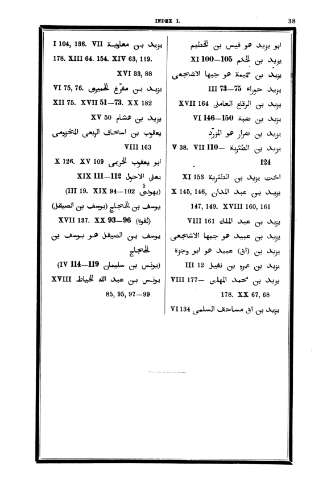 INDEX I.
38
ابو يزيد هو قيس بن الخطيم
يزيد بن الحكم XI 100—105
يزيد بن خيثمة هو جبها الاشجعى
يزيد حوراء III 73—75
يزيد بن الرقاع العاملى XVII 164
يزيد بن ضبة VI 146—150
يزيد بن ضرار هو المزرد
يزيد بن الطثرية V 38. VII 110—
124
اخت يزيد بن الطثرية XI 153
يزيد بن عبد المدان X 145, 146,
147, 149. XVIII 160, 161
يزيد بن عبد الملك VIII 161
يزيد بن عبيد هو جبها الاشجعى
يزيد بن (ابى) عبيد هو ابو وجزة
يزيد بن عمرو بن نفيل III 12
يزيد بن محمد المهلبى VIII 177—
178. XX 67, 68
يزيد بن ابى مساحق السلمى VI 134
يزيد بن معاوية I 104, 138. VII
178. XIII 64. 154. XIV 63, 119.
XVI 33, 88
يزيد بن مفرغ الحميرى VI 75, 76.
XII 75. XVII 51—73. XX 182
يزيد بن هشام XV 50
يعقوب بن اسحاق الربعى المخزومى
VIII 163
ابو يعقوب الخريمى X 126. XV 109
يعلى الاحول XIX 111—112
(يهودى III 19. XIX 94—102)
(يوسف بن الحجاج) (يوسف بن الصيقل)
(لقوة) XVII 137. XX 93—96
يوسف بن الصيقل هو يوسف بن
الحجاج
(يونس بن سليمان IV 114—119)
يونس بن عبد الله الخياط XVIII
85, 95, 97—99